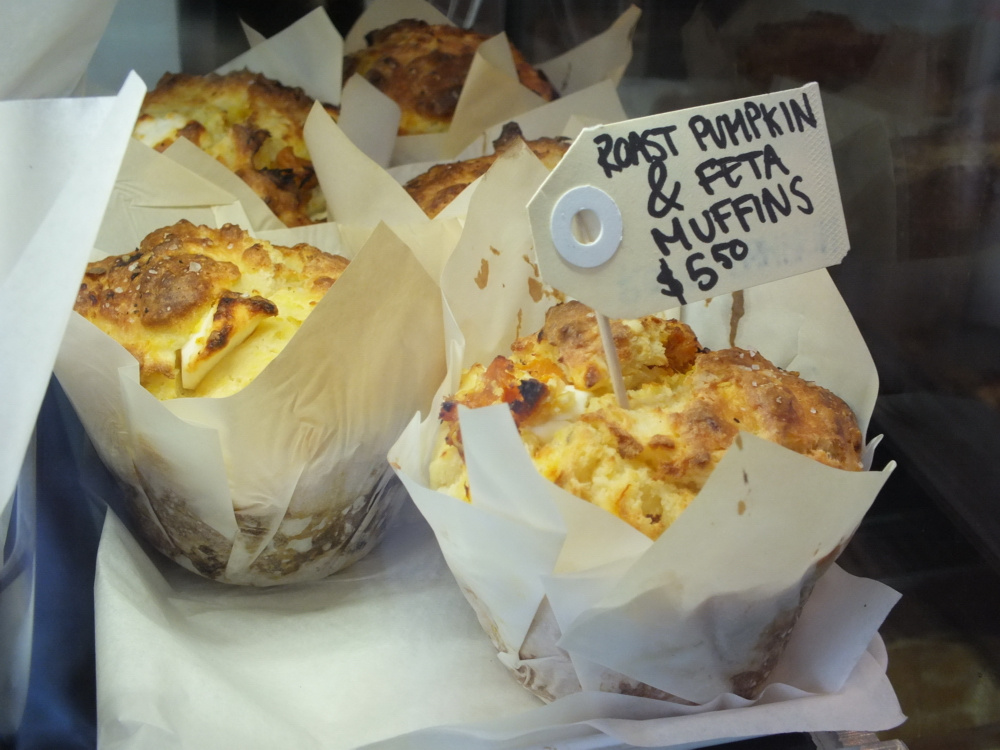 ROAST PUMPKIN
& FETA
MUFFINS
$550